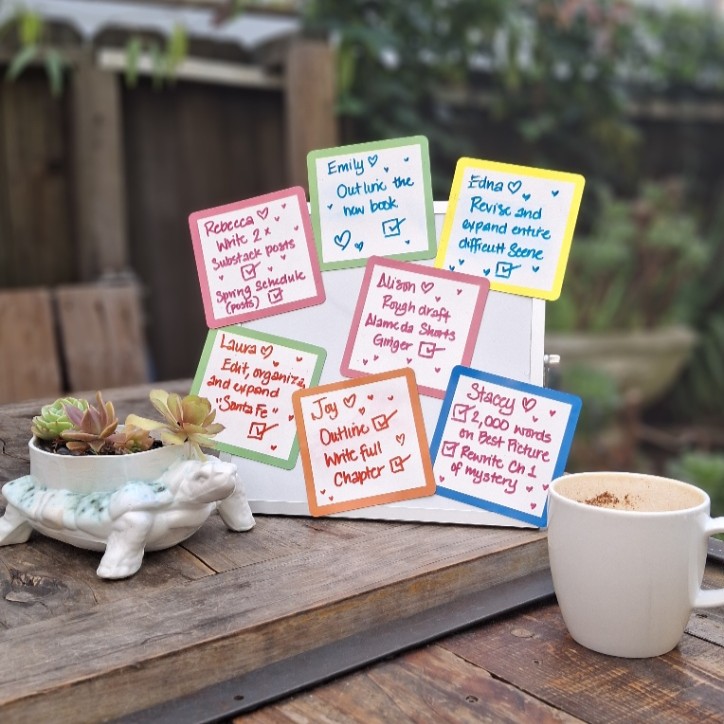 Emily
Outline the
new book
Edna
Revise and
expand entire
difficult scene
Rebecca
Write 2x
Substack posts
Spring Schedule
(posts)
Alison
Rough draft
Alameda Shorts
Ginger
Laura
Edit, organize,
and expand
"Santa Fe"
Joy
Outline
Write full
Chapter
Stacey
2,000 words
on Best Picture
Rewrite Ch 1
of mystery